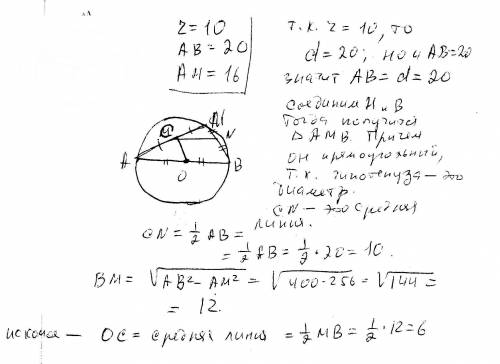 r = 10
AB = 20
AM = 16
т.к. r = 10, то
d = 20; но и AB = 20
значит AB = d = 20
соединим М и В
Тогда получится
△ AMB. Причем
он прямоугольный,
т.к. гипотенуза – это
диаметр.
CN – это средняя
линия.
A
C
M
N
B
O
CN = 1/2 AB =
= 1/2 AB = 1/2 · 20 = 10.
BM = √AB² – AM² = √400-256 = √144 =
= 12.
OC = средняя линия = 1/2 MB = 1/2 · 12 = 6